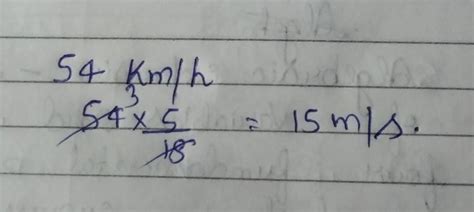 54 Km/h
54 3 × 5/18 = 15 m/s.